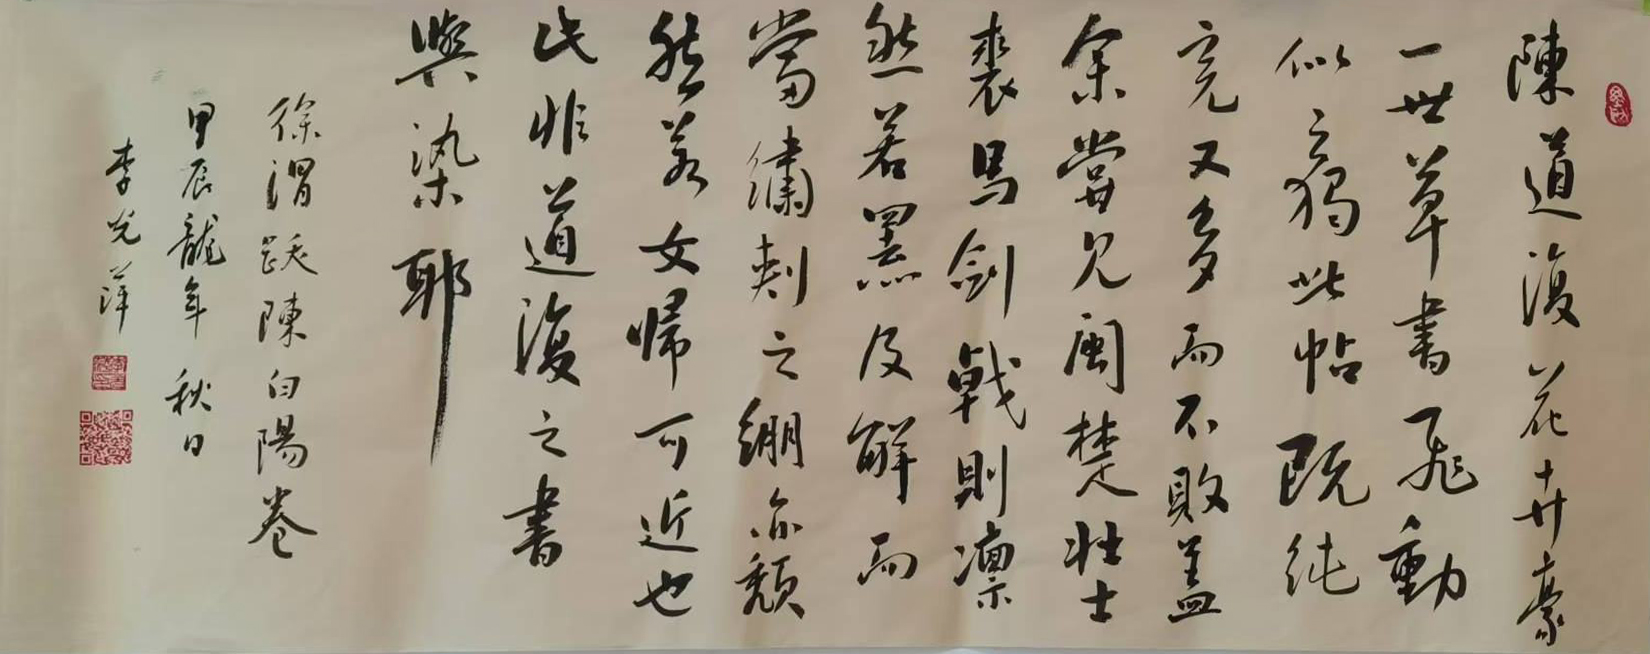 陳道復花卉豪
一世草書飛動
似之獨此帖既純
完又多而不敗蓋
余嘗見閩楚壯士
裘馬劍戟則凛
然若羆及解而
當繡刺之繃亦頹
然若女婦可近也
此非道復之書
與染耶
徐渭跋陳白陽卷
甲辰龍年秋日
李光萍